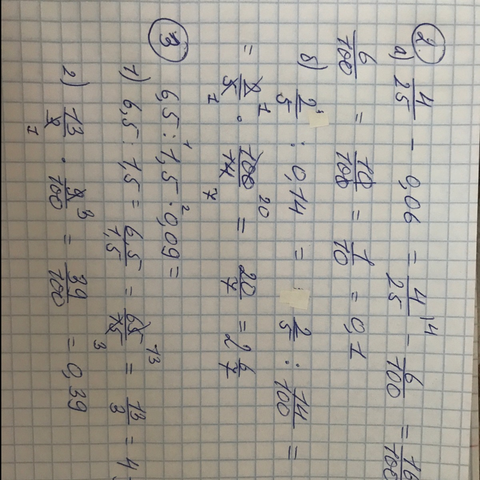 2
а) 4/25 - 0,06 = 4/25 ⁾⁴ - 6/100 = 16/100
6/100 = 10/100 = 1/10 = 0,1
б) 2/5 : 0,14 = 2/5 : 14/100 =
= 2¹/5₁ · 100²⁰/14₇ = 20/7 = 2 6/7
3
6,5 :¹ 1,5 ·² 0,09 =
1) 6,5 : 1,5 = 6,5/1,5 = 65¹³/15₃ = 13/3 = 4
2) 13/3₁ · 9³/100 = 39/100 = 0,39